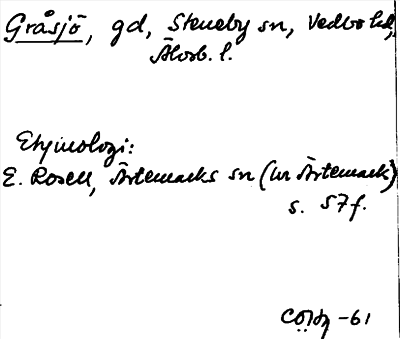 Gråsjö, gd, Steneby sn, Vedbo hd,
Älvsb. l.
Etymologi:
E. Rosell, Ärtemarks sn (ur Ärtemark)
s. 57f.
-61